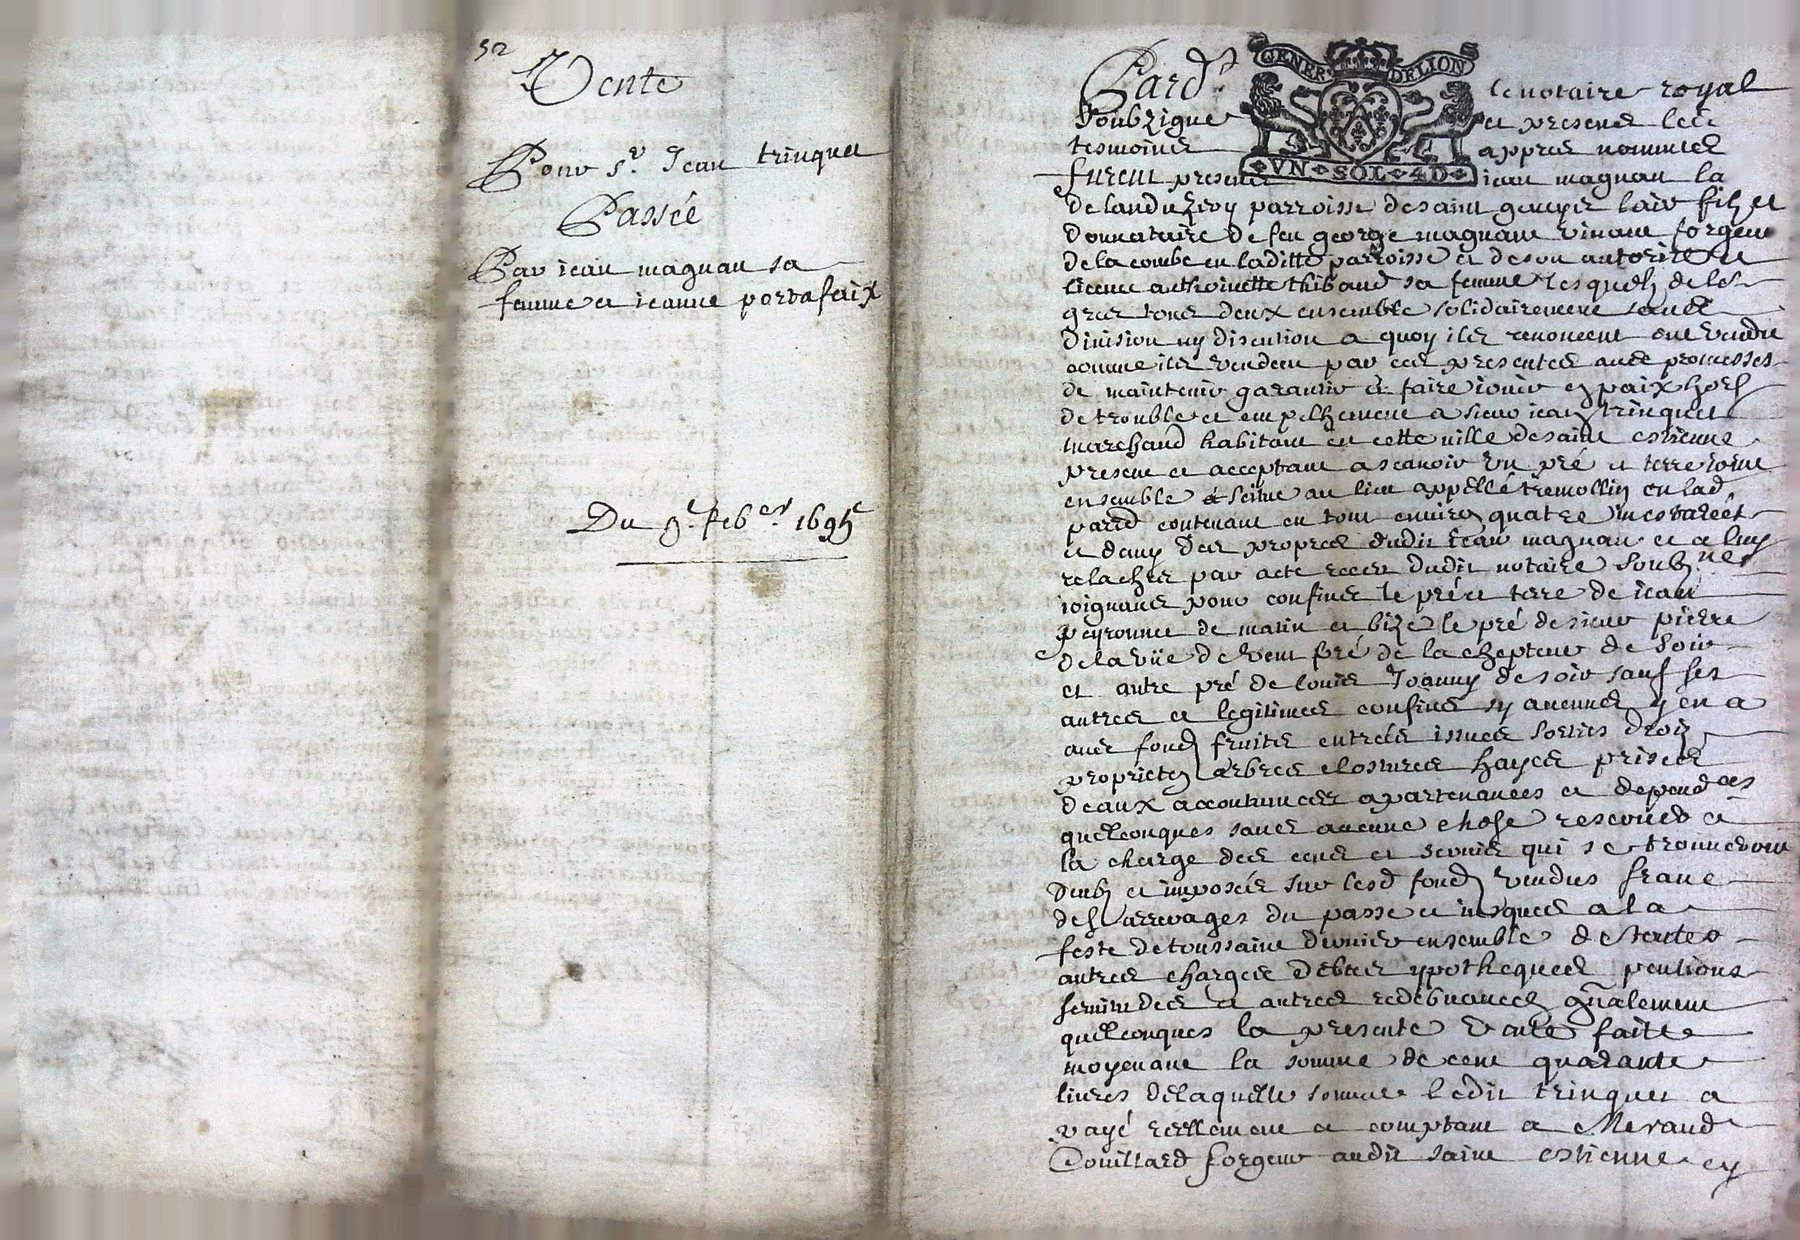 52
Vente
Pour Sr. Jean trinquet
Passée
Par jean magnan sa
femme et jeanne portafaix
Du 9e feber. 1695
GENER DELION
VN SOL 4D
Pard.t le notaire royal
soubzigne et presens les
tesmoins apprez nommes
furent presens jean magnan la
de landuzery parroisse de saint genyer lair filz et
donnataire de feu george magnan vivant forgeur
de la combe en laditte parroisse et de son autorite et
licence anthoinette thibaud sa femme lesquelz de les
grez tous deux ensemble solidairement sans
division ny discution a quoy ils renoncent ont vendu
comme ils vendent par ces presentes avec promesses
de maintenir garantir et faire jouir en paix hors
de trouble et empeschement a sieur jean trinquet
marchand habitant en cette ville de saint estienne
present et acceptant a scavoir un pré et terre joint
ensemble et scitue au lieu appellé tremollin en lad
parred contenant en tout environ quatre mestarées
et demy des propres dudit jean magnan et a luy
relaches par acte receu dudit notaire soubzne
joignans pour confins le pré et terre de jean
peyronnet de matin et bize le pré de sieur pierre
de la vüe de vent pré de la chepteur de soir
et autre pré de louis Joanny de soir sauf ses
autres et legitimes confins sy aucunes y en a
avec fondz fruits entrées issues sorties droiz
proprietez arbres closures hayes prises
deaux accoutumees apartenances et dependces
quelconques sans aucune chose reserves a
la charge des cens et servis qui se trouveront
deubz et imposés sur lesd fondz vendus franc
des arrerages du passe et jusques a la
feste de toussaint dernier ensemble de toutes
autres charges debtes ypotheques pentions
servitudes et autres redebvances gnalement
quelconques la presente vente faitte
moyenant la somme de cent quarante
livres de laquelle somme ledit trinquet a
payé reellement et comptant a Meraud
Couillard forgeur audit saint estienne cy